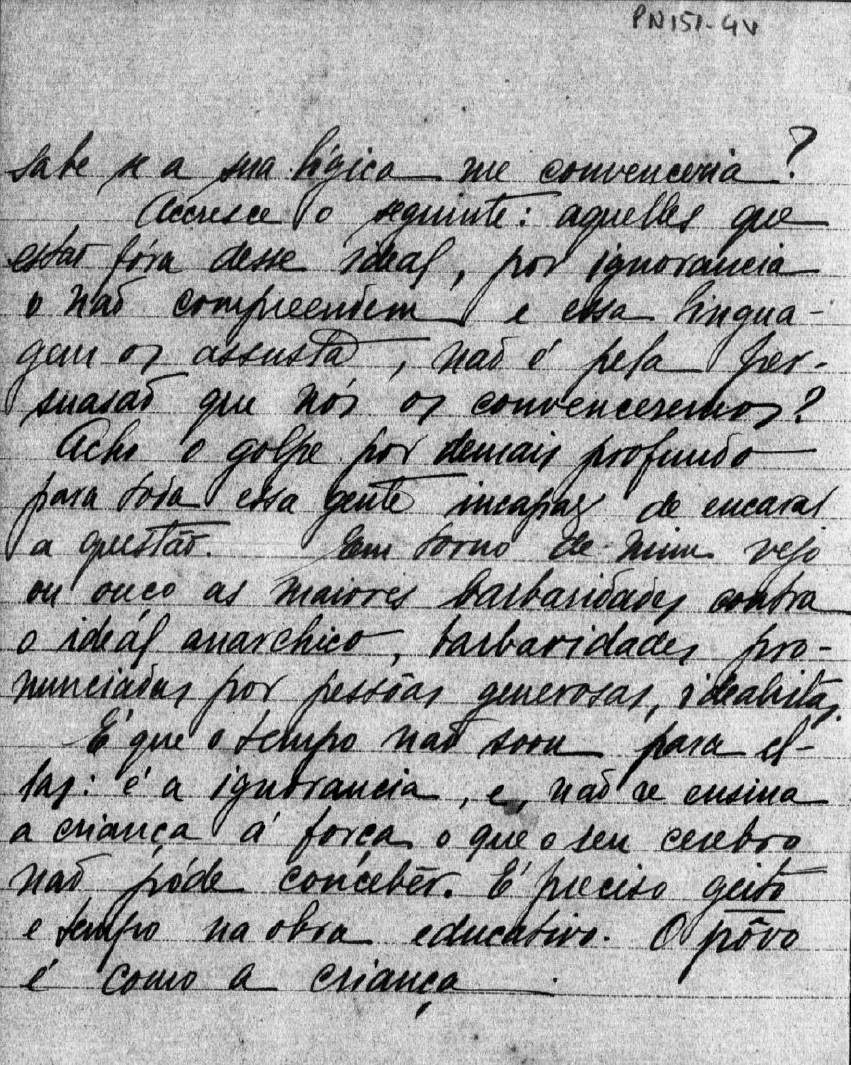 PN151-4V
sabe se a sua lógica me convenceria?
Accresce o seguinte: aquelles que
estão fóra desse ideal, por ignorancia
o não compreendem e essa lingua-
gem os assusta, não é pela per-
suasão que nós os convenceremos?
Acho o golpe por demais profundo
para toda essa gente incapaz de encarar
a questão. Em torno de mim vejo
ou ouço as maiores barbaridades contra
o ideál anarchico, barbaridades pro-
nunciadas por pessôas generosas, idealistas,
E' que o tempo não soou para el-
las: é a ignorancia, e, não se ensina
a criança á força o que o seu cerebro
não póde concebêr. E' preciso geito
e tempo na obra educativa. O pôvo
é como a criança.